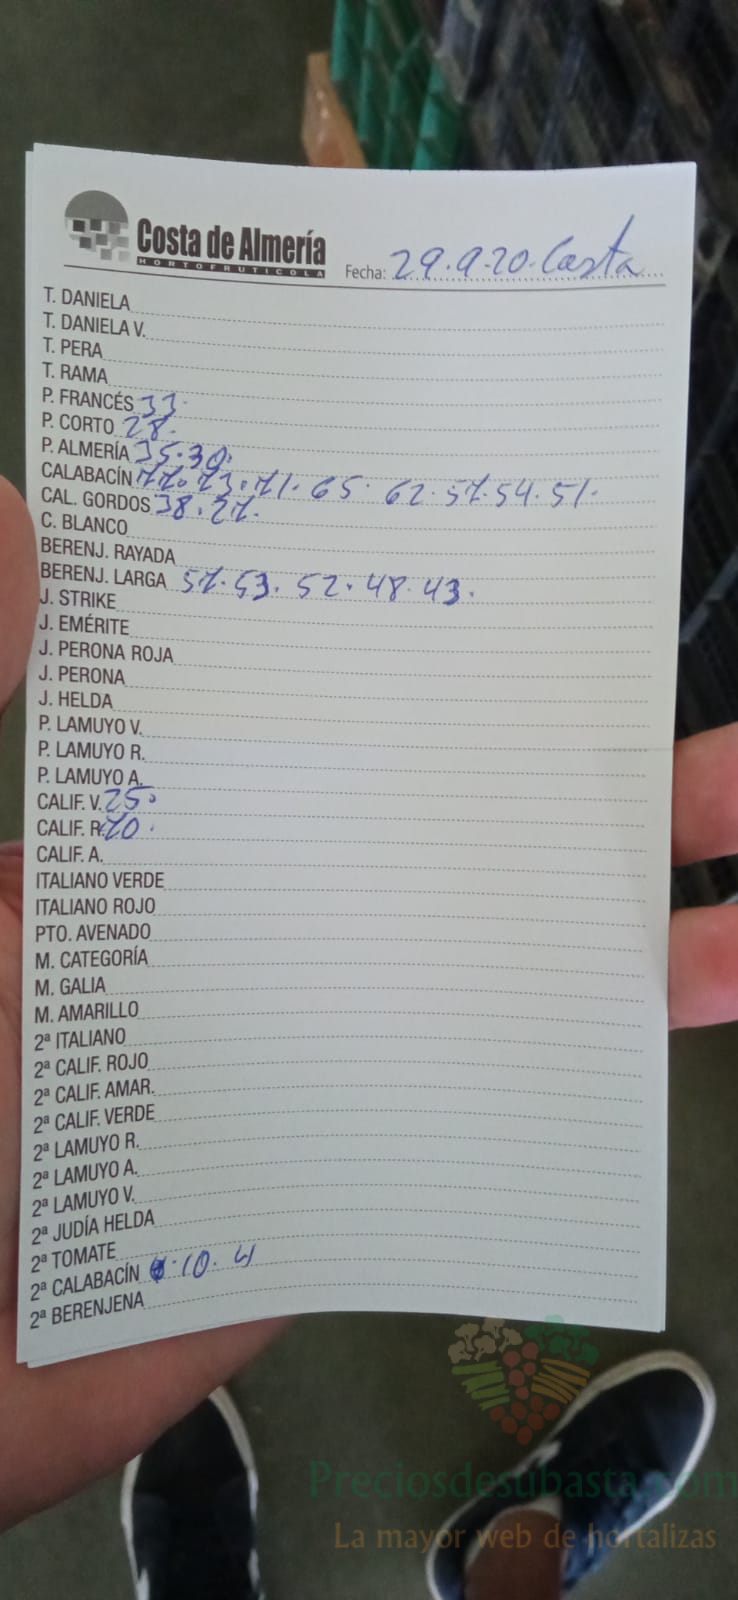 Costa de Almería
HORTOFRUTICOLA
Fecha: 29.9.20. Costa
T. DANIELA
T. DANIELA V.
T. PERA
T. RAMA
P. FRANCÉS 33.
P. CORTO 28.
P. ALMERÍA 35.30.
CALABACÍN 77. 73. 71. 65. 62. 57. 54. 51.
CAL. GORDOS 38. 27.
C. BLANCO
BERENJ. RAYADA
BERENJ. LARGA 57. 53. 52. 48. 43.
J. STRIKE
J. EMÉRITE
J. PERONA ROJA
J. PERONA
J. HELDA
P. LAMUYO V.
P. LAMUYO R.
P. LAMUYO A.
CALIF. V. 25.
CALIF. R. 70.
CALIF. A.
ITALIANO VERDE
ITALIANO ROJO
PTO. AVENADO
M. CATEGORÍA
M. GALIA
M. AMARILLO
2ª ITALIANO
2ª CALIF. ROJO
2ª CALIF. AMAR.
2ª CALIF. VERDE
2ª LAMUYO R.
2ª LAMUYO A.
2ª LAMUYO V.
2ª JUDÍA HELDA
2ª TOMATE
2ª CALABACÍN 10. 4
2ª BERENJENA
Preciosdesubasta.com
La mayor web de hortalizas